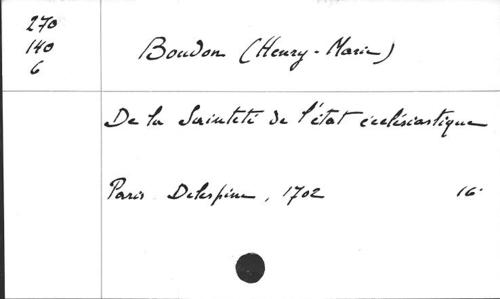 270
140
6
Boudon (Henry-Marie)
De la Sainteté de l'état ecclésiastique
Paris Delespine, 1702 16°